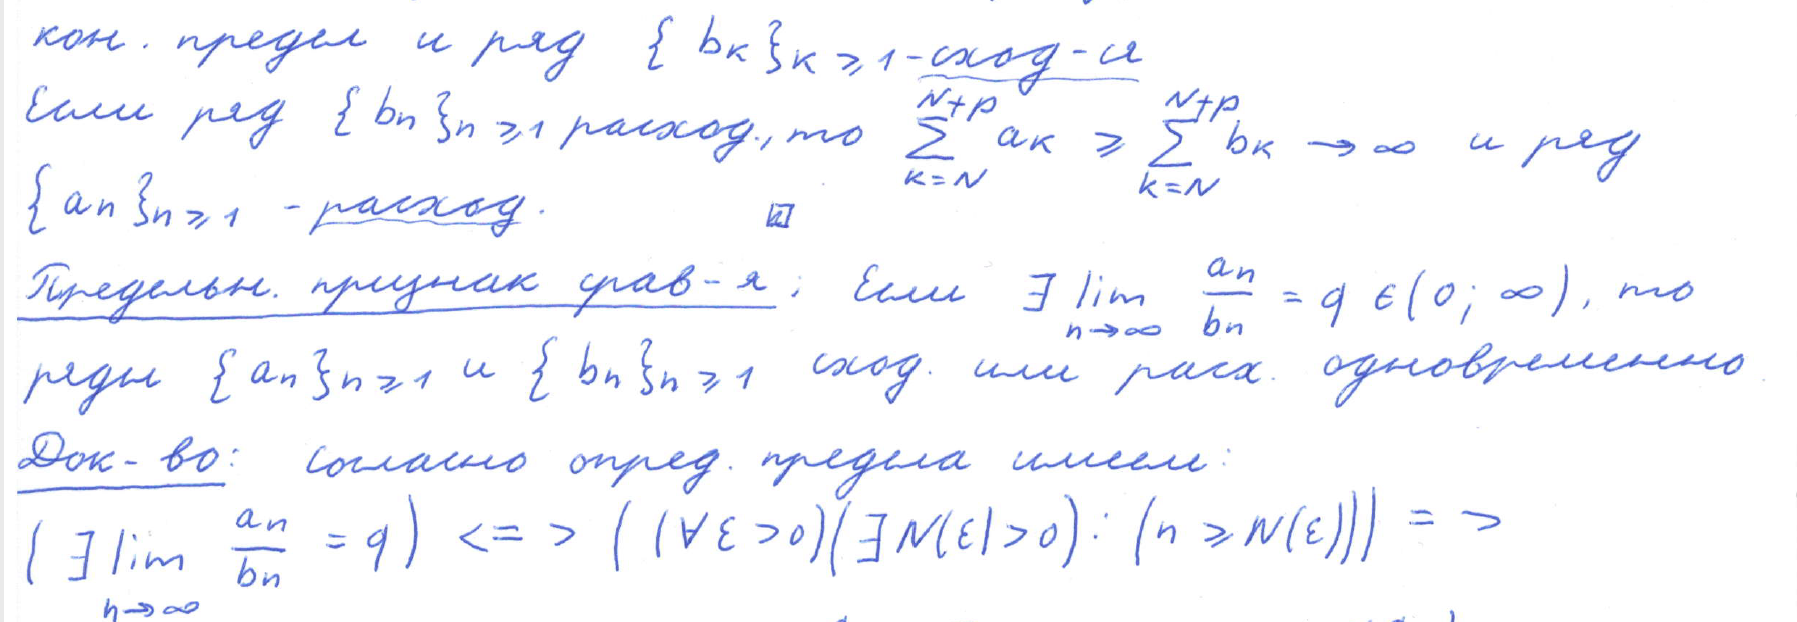 кон. предел и ряд {bк}к⩾1 - сход-ся
Если ряд {bn}n⩾1 расход., то ∑_{к=N}^{N+p} aк ⩾ ∑_{к=N}^{N+p} bк → ∞ и ряд
{an}n⩾1 - расход.
Предельн. признак срав-я: Если ∃ lim_{n→∞} an/bn = q ∈ (0; ∞), то
ряды {an}n⩾1 и {bn}n⩾1 сход. или расх. одновременно
Док-во: Согласно опред. предела имеем:
(∃ lim_{n→∞} an/bn = q) <=> ((∀ε>0)(∃N(ε)>0): (n⩾N(ε))) =>